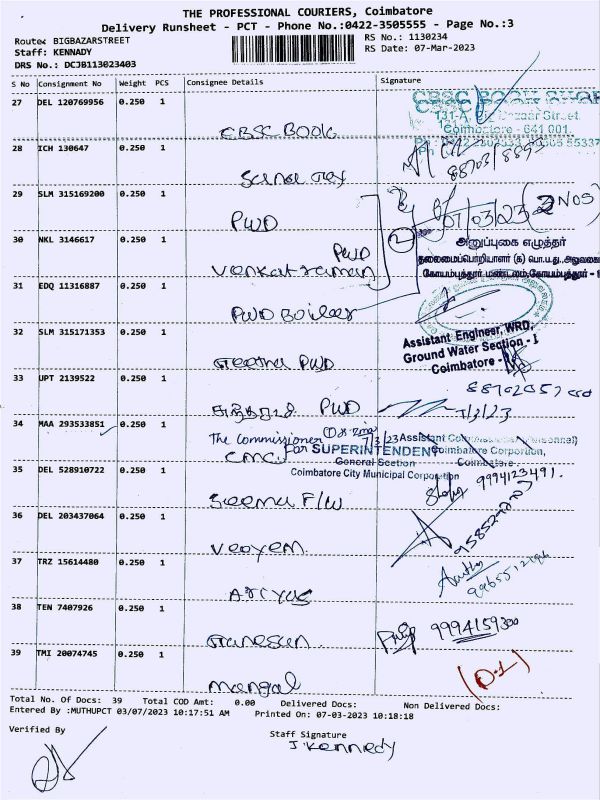 THE PROFESSIONAL COURIERS, Coimbatore
Delivery Runsheet - PCT - Phone No.:0422-3505555 - Page No.:3
Route: BIGBAZARSTREET
Staff: KENNADY
DRS No.: DCJB113023403
RS No.: 1130234
RS Date: 07-Mar-2023
S No Consignment No Weight PCS Consignee Details Signature
27 DEL 120769956 0.250 1
CBSC BOOK
CBSC BOOK SHOP
Coimbatore - 641 001.
28 ICH 130647 0.250 1
29 SLM 315169200 0.250 1
PWD
07/03/23 (2 NOS)
30 NKL 3146617 0.250 1
PWD
Venkatraman
2
அனுப்புகை எழுத்தர்
31 EDQ 11316887 0.250 1
PWD Boiler
32 SLM 315171353 0.250 1
Geetha PWD
Assistant Engineer, WRD,
Ground Water Section - I
Coimbatore -
33 UPT 2139522 0.250 1
PWD
7/3/23
34 MAA 293533851 0.250 1
The Commissioner
CMC
7/3/23
For SUPERINTENDENT
General Section
Coimbatore City Municipal Corporation
Coimbatore Corporation,
Coimbatore.
35 DEL 528910722 0.250 1
Seema F/W
9994123491.
36 DEL 203437064 0.250 1
37 TRZ 15614480 0.250 1
Ariyas
38 TEN 7407926 0.250 1
Ganesan
9994159300
39 TMI 20074745 0.250 1
Mangal
Total No. Of Docs: 39 Total COD Amt: 0.00 Delivered Docs: Non Delivered Docs:
Entered By :MUTHUPCT 03/07/2023 10:17:51 AM Printed On: 07-03-2023 10:18:18
Verified By
Staff Signature
J. Kennedy